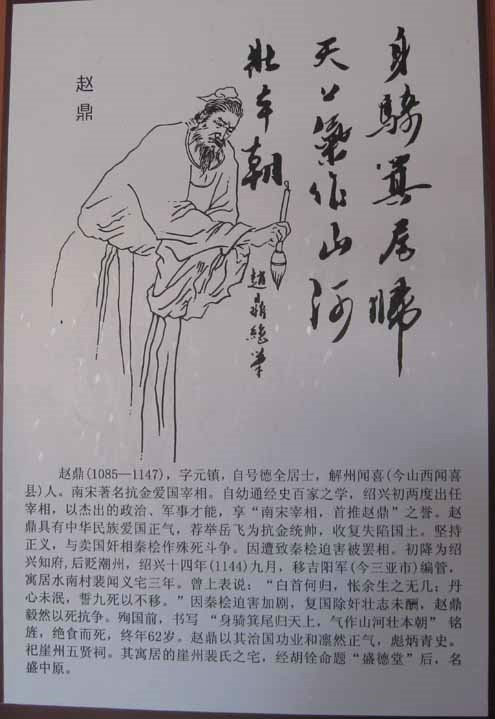 身騎箕尾歸
天上氣作山河
壯本朝
趙鼎絕筆
赵鼎
赵鼎(1085—1147)，字元镇，自号德全居士，解州闻喜(今山西闻喜
县)人。南宋著名抗金爱国宰相。自幼通经史百家之学，绍兴初两度出任
宰相，以杰出的政治、军事才能，享“南宋宰相，首推赵鼎”之誉。赵
鼎具有中华民族爱国正气，荐举岳飞为抗金统帅，收复失陷国土。坚持
正义，与卖国奸相秦桧作殊死斗争。因遭致秦桧迫害被罢相。初降为绍
兴知府,后贬潮州，绍兴十四年(1144)九月，移吉阳军(今三亚市)编管，
寓居水南村裴闻义宅三年。曾上表说：“白首何归，怅余生之无几；丹
心未泯，誓九死以不移。”因秦桧迫害加剧，复国除奸壮志未酬，赵鼎
毅然以死抗争。殉国前，书写 “身骑箕尾归天上，气作山河壮本朝” 铭
旌，绝食而死，终年62岁。赵鼎以其治国功业和凛然正气，彪炳青史。
祀崖州五贤祠。其寓居的崖州裴氏之宅，经胡铨命题“盛德堂”后，名
盛中原。